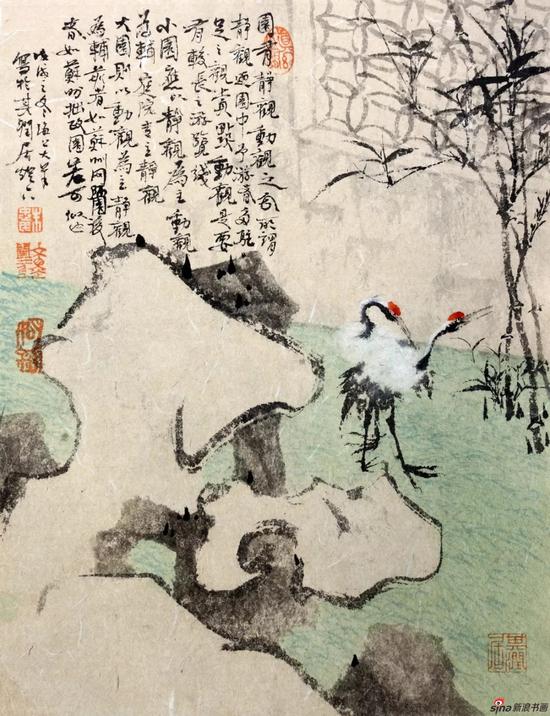 園有靜觀動觀之分所謂
靜觀迺園中予游者多駐
足之觀賞點動觀是要
有較長之游覽綫
小園應以靜觀為主動觀
為輔庭院專主靜觀
大園則以動觀為主靜觀
為輔前者如蘇州网師園後
者如蘇州拙政園差可似之
戊戌之冬
寫於其潤居
sina新浪书画